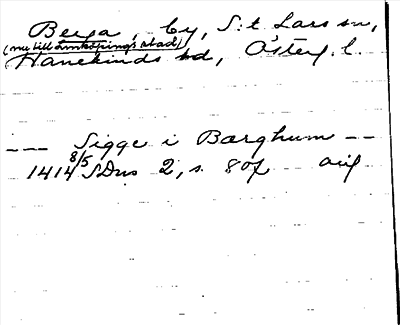 Berga, by, S:t Lars sn,
(nu till Linköpings stad)
Hanekinds hd, Österg. l.
--- Sigge i Barghum --
1414 8/5 SDns 2, s. 807 orig